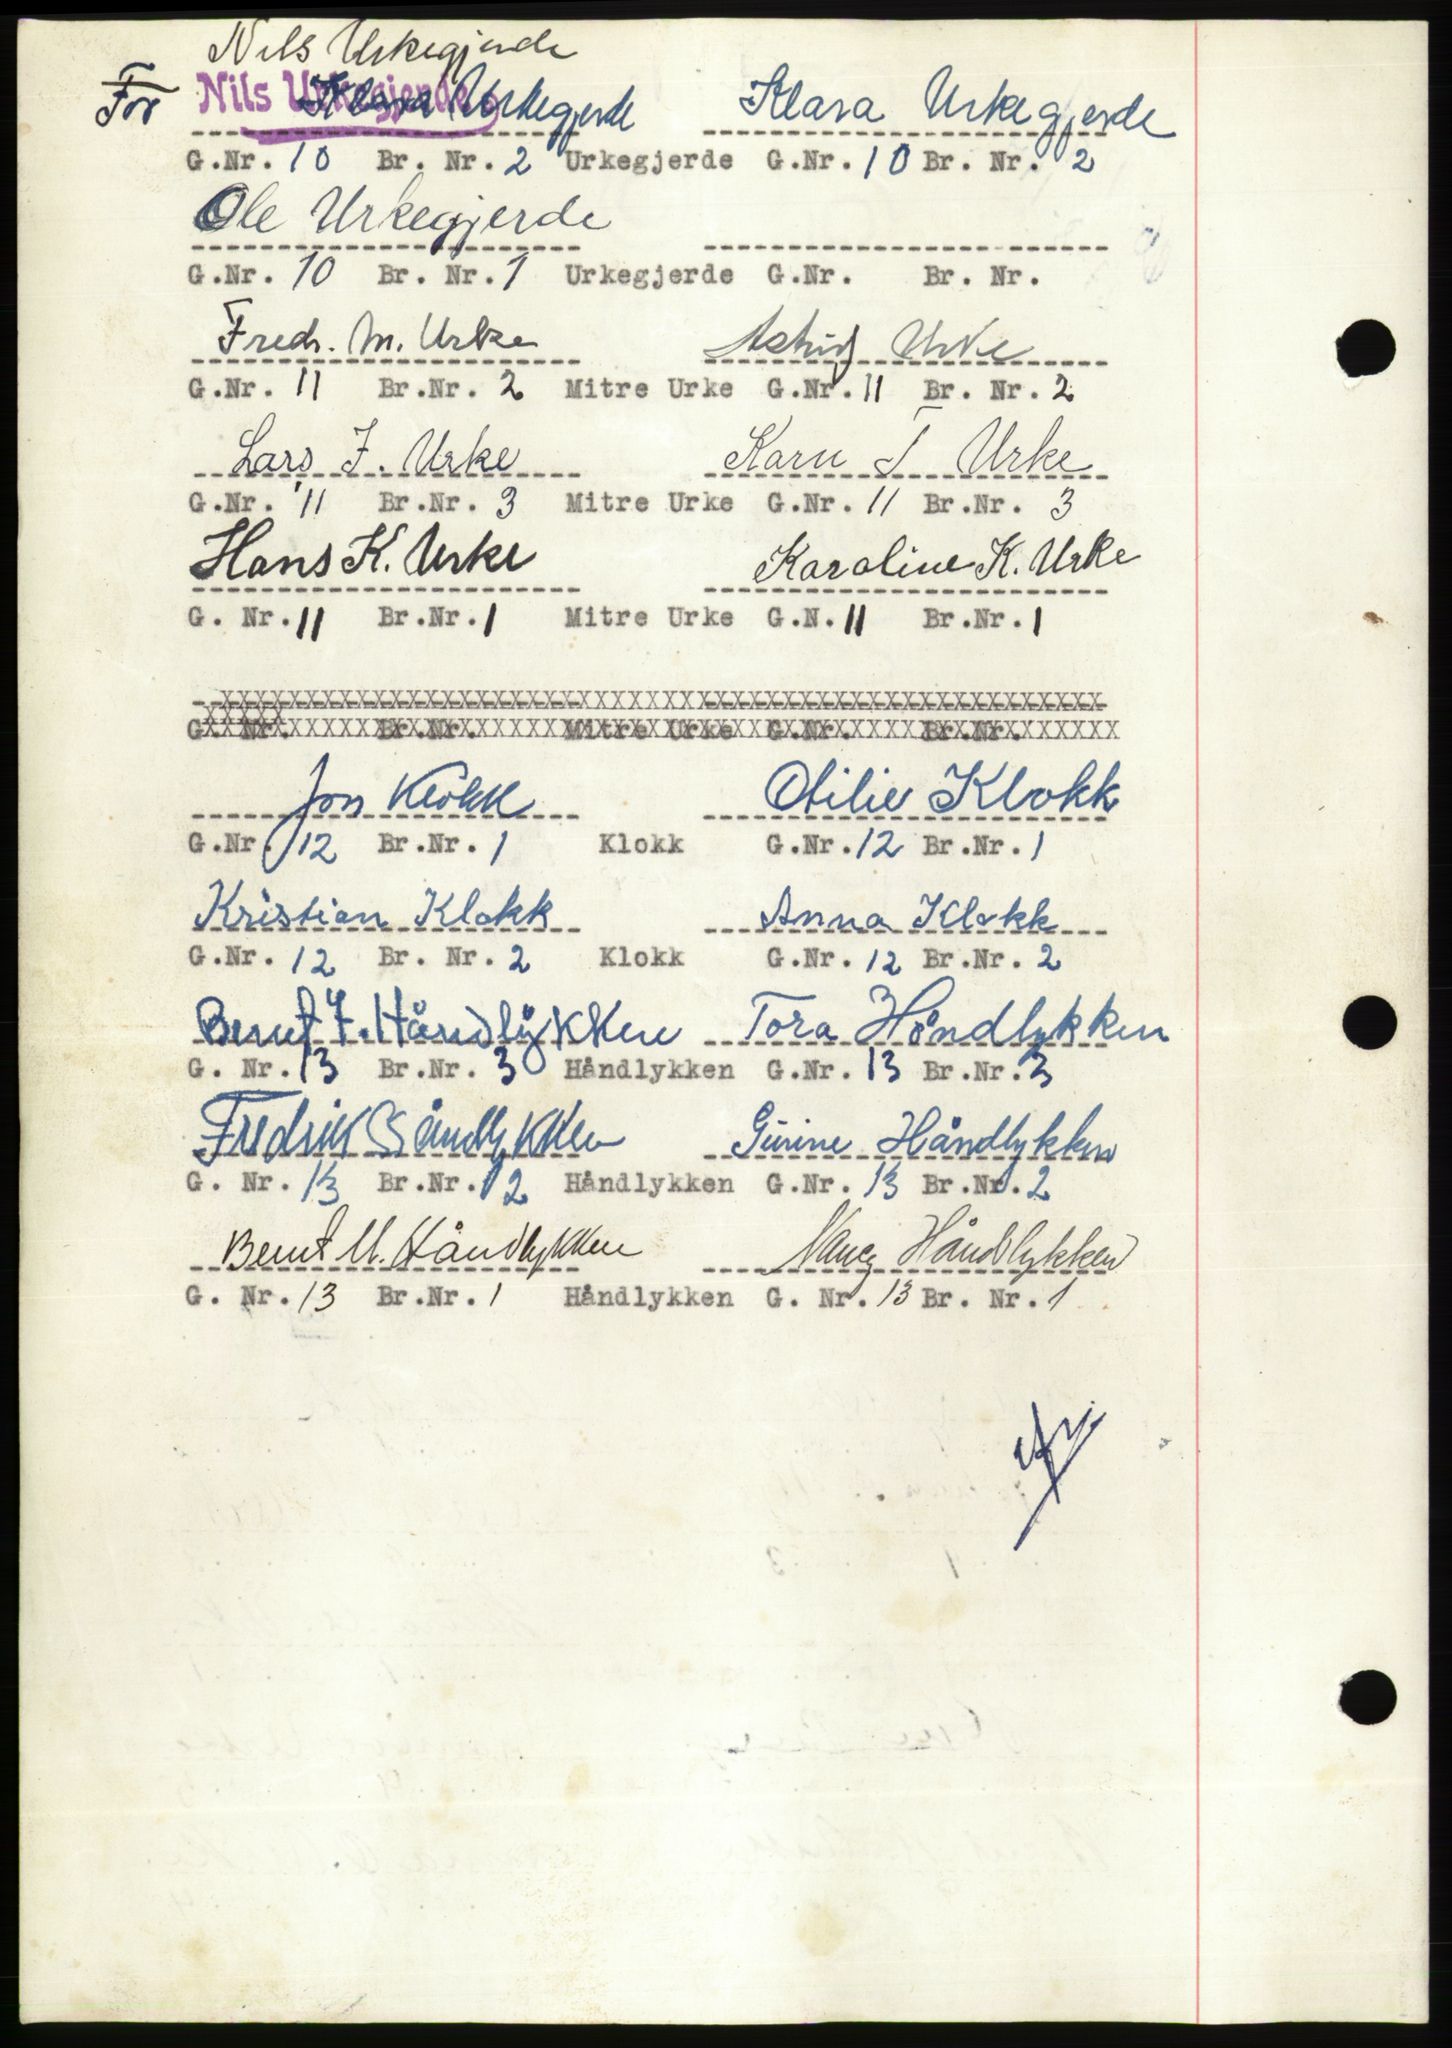 Nils Urkegjerde
For Nils Urkegjerde Klara Urkegjerde Klara Urkegjerde
G.Nr. 10 Br. Nr. 2 Urkegjerde G.Nr. 10 Br. Nr. 2
Ole Urkegjerde
G.Nr. 10 Br. Nr. 1 Urkegjerde G.Nr. Br. Nr.
Fredr. M. Urke Astrid Urke
G.Nr. 11 Br.Nr. 2 Mitre Urke G.Nr. 11 Br. Nr. 2
Lars J. Urke Karn T Urke
G.Nr. 11 Br.Nr. 3 Mitre Urke G.Nr. 11 Br.Nr. 3
Hans K. Urke Karoline K. Urke
G. Nr. 11 Br.Nr. 1 Mitre Urke G.N. 11 Br.Nr. 1
G. Nr. Br.Nr. Mitre Urke G.Nr. Br.Nr.
Jon Klokk Otilie Klokk
G.Nr. 12 Br.Nr. 1 Klokk G.Nr. 12 Br.Nr. 1
Kristian Klokk Anna Klokk
G.Nr. 12 Br. Nr. 2 Klokk G.Nr. 12 Br.Nr. 2
Bernt F. Håndlykken Tora Håndlykken
G. Nr. 13 Br.Nr. 3 Håndlykken G.Nr. 13 Br.Nr. 3
Fredrik Håndlykken Gurine Håndlykken
G. Nr. 13 Br.Nr. 2 Håndlykken G.Nr. 13 Br.Nr. 2
Bernt M. Håndlykken Nancy Håndlykken
G. Nr. 13 Br.Nr. 1 Håndlykken G. Nr. 13 Br. Nr. 1